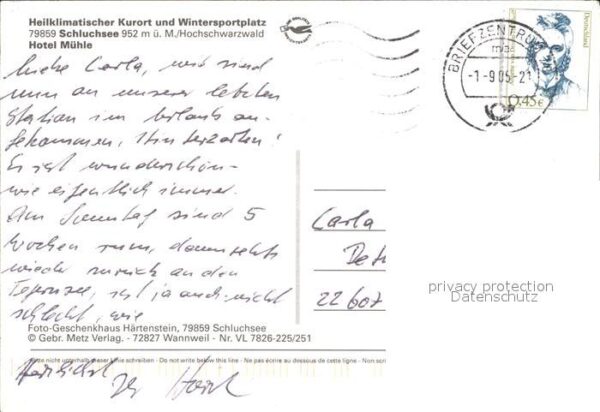 Heilklimatischer Kurort und Wintersportplatz
79859 Schluchsee 952 m ü. M./Hochschwarzwald
Hotel Mühle
Liebe Carla, wir sind
nun an unserer letzten
Station im Urlaub an-
gekommen, Hinterzarten!
Es ist wunderschön-
wie eigentlich immer.
Am Sonntag sind 5
Wochen rum, dann geht's
wieder zurück an den
Tegernsee, ist ja auch nicht
schlecht, wie
Foto-Geschenkhaus Härtenstein, 79859 Schluchsee
© Gebr. Metz Verlag. - 72827 Wannweil - Nr. VL 7826-225/251
Bitte nicht unterhalb dieser Linie schreiben - Do not write below this line - Ne pas écrire au dessous de cette ligne - Non scri
Herzlichst
BRIEFZENTRUM
-1-9 05-21
Deutschland
0,45€
Carla
22607
privacy protection
Datenschutz